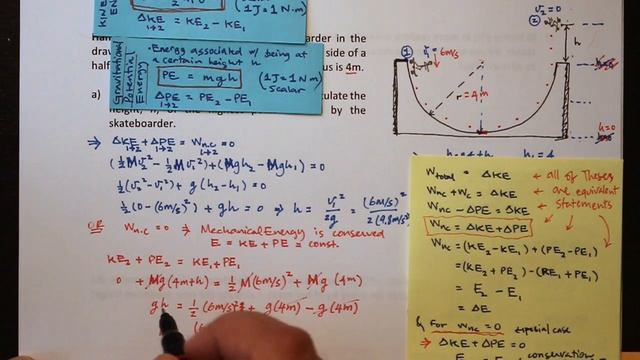 KINE
EN
(1J = 1N·m)
scalar
ΔKE = KE₂ − KE₁
1→2
Gravitational Potential Energy
• Energy associated w/ being at
a certain height h
PE = mgh
(1J = 1N·m)
scalar
ΔPE = PE₂ − PE₁
1→2
Han
arder in the
draw
side of a
half
us is 4m.
a)
culate the
height,
by the
skateboarder.
⇒ ΔKE + ΔPE = Wn.c = 0
1→2 1→2 1→2
(½Mv₂² − ½Mv₁²) + (Mgh₂ − Mgh₁) = 0
½(v₂² − v₁²) + g(h₂ − h₁) = 0
½(0 − (6m/s)²) + gh = 0 ⇒ h = v₁²/2g = (6m/s)²/2(9.8m/s²)
OR Wn.c = 0 ⇒ Mechanical Energy is conserved
E = KE + PE = const.
KE₂ + PE₂ = KE₁ + PE₁
0 + Mg(4m+h) = ½M(6m/s)² + Mg(4m)
gh = ½(6m/s)² + g(4m) − g(4m)
(6
v₂ = 0
②
①
v₁ = 6m/s
h
r = 4m
h = 0
Wtotal = ΔKE ← all of These
Wnc + Wc = ΔKE ← are equivalent
Wnc − ΔPE = ΔKE ← statements
Wnc = ΔKE + ΔPE
Wnc = (KE₂ − KE₁) + (PE₂ − PE₁)
= (KE₂ + PE₂) − (KE₁ + PE₁)
= E₂ − E₁
= ΔE
for Wnc = 0 ← special case
⇒ ΔKE + ΔPE = 0